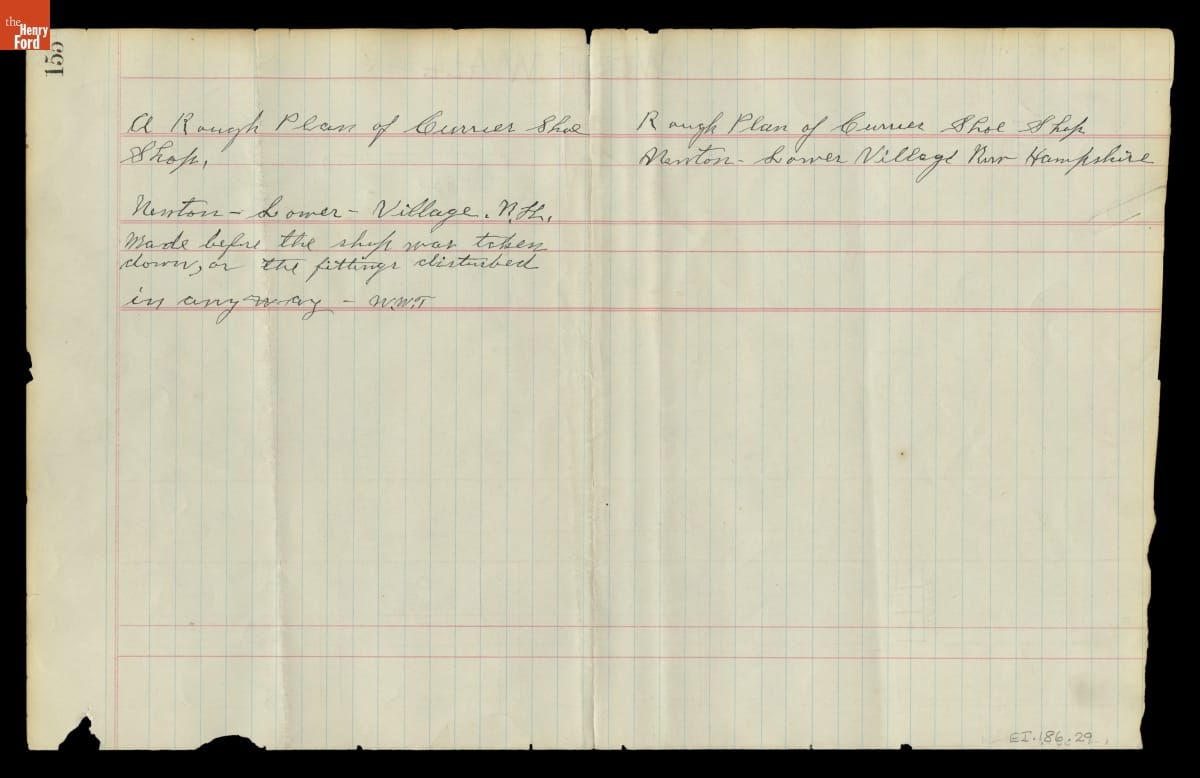 the
Henry
Ford
155
A Rough Plan of Currier Shoe
Shop,
Newton - Lower - Village. N.H.
Made before the shop was taken
down, or the fittings disturbed
in anyway - W.W.T
Rough Plan of Currier Shoe Shop
Newton - Lower Village New Hampshire
EI.186.29